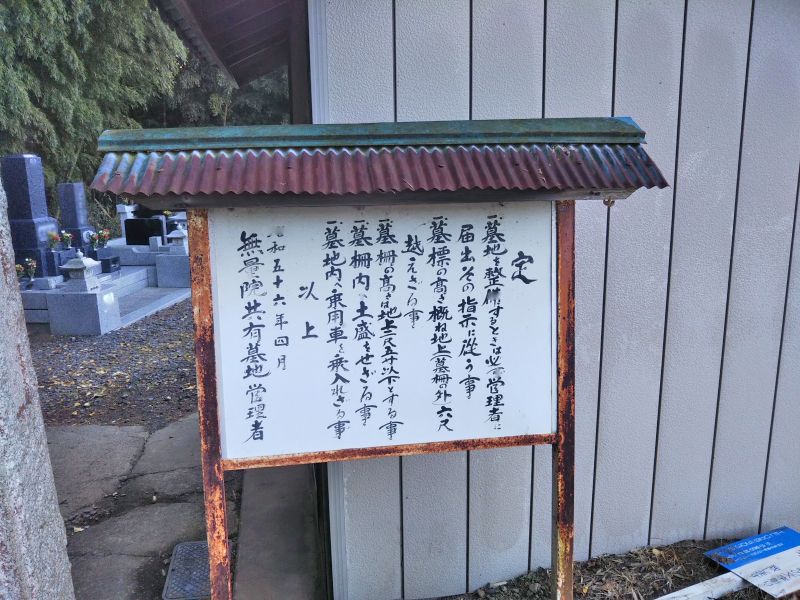 定
一、墓地を整備するときは必ず管理者に
届出その指示に従う事
一、墓標の高さ概ね地上(墓柵の外)六尺
越えざる事
一、墓柵の高さは地上二尺五寸以下とする事
一、墓柵内へ土盛をせざる事
一、墓地内へ乗用車を乗入れざる事
以上
昭和五十六年四月
無量院共有墓地管理者